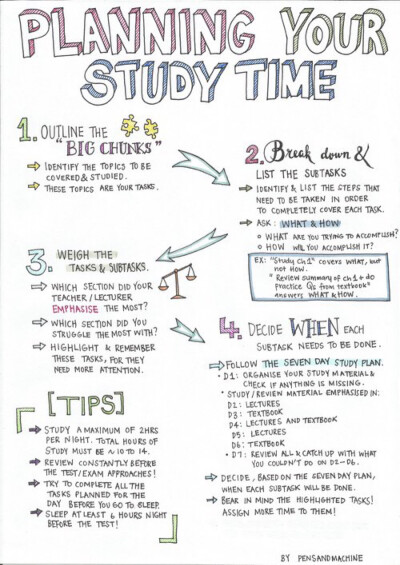 PLANNING YOUR
STUDY TIME
1. OUTLINE THE
"BIG CHUNKS"
IDENTIFY THE TOPICS TO BE
COVERED & STUDIED.
THESE TOPICS ARE YOUR TASKS.
2. Break down &
LIST THE SUBTASKS
IDENTIFY & LIST THE STEPS THAT
NEED TO BE TAKEN IN ORDER
TO COMPLETELY COVER EACH TASK.
ASK: WHAT & HOW
WHAT ARE YOU TRYING TO ACCOMPLISH?
HOW WILL YOU ACCOMPLISH IT?
EX: "Study Ch1" covers WHAT, but
not HOW.
"Review summary of Ch1 + do
Practice Qs from textbook"
answers WHAT & HOW.
3. WEIGH THE
TASKS & SUBTASKS.
WHICH SECTION DID YOUR
TEACHER / LECTURER
EMPHASISE THE MOST?
WHICH SECTION DID YOU
STRUGGLE THE MOST WITH?
HIGHLIGHT & REMEMBER
THESE TASKS, FOR THEY
NEED MORE ATTENTION.
4. DECIDE WHEN EACH
SUBTASK NEEDS TO BE DONE.
FOLLOW THE SEVEN DAY STUDY PLAN.
• D1: ORGANISE YOUR STUDY MATERIAL &
CHECK IF ANYTHING IS MISSING.
• STUDY/REVIEW MATERIAL EMPHASISED IN:
D2: LECTURES
D3: TEXTBOOK
D4: LECTURES AND TEXTBOOK
D5: LECTURES
D6: TEXTBOOK
• D7: REVIEW ALL & CATCH UP WITH WHAT
YOU COULDN'T DO ON D2-D6.
DECIDE, BASED ON THE SEVEN DAY PLAN,
WHEN EACH SUBTASK WILL BE DONE.
BEAR IN MIND THE HIGHLIGHTED TASKS!
ASSIGN MORE TIME TO THEM!
[TIPS]
STUDY A MAXIMUM OF 2HRS
PER NIGHT. TOTAL HOURS OF
STUDY MUST BE ~ 10 TO 14.
REVIEW CONSTANTLY BEFORE
THE TEST/EXAM APPROACHES!
TRY TO COMPLETE ALL THE
TASKS PLANNED FOR THE
DAY BEFORE YOU GO TO SLEEP.
SLEEP AT LEAST 6 HOURS NIGHT
BEFORE THE TEST!
BY PENSANDMACHINE